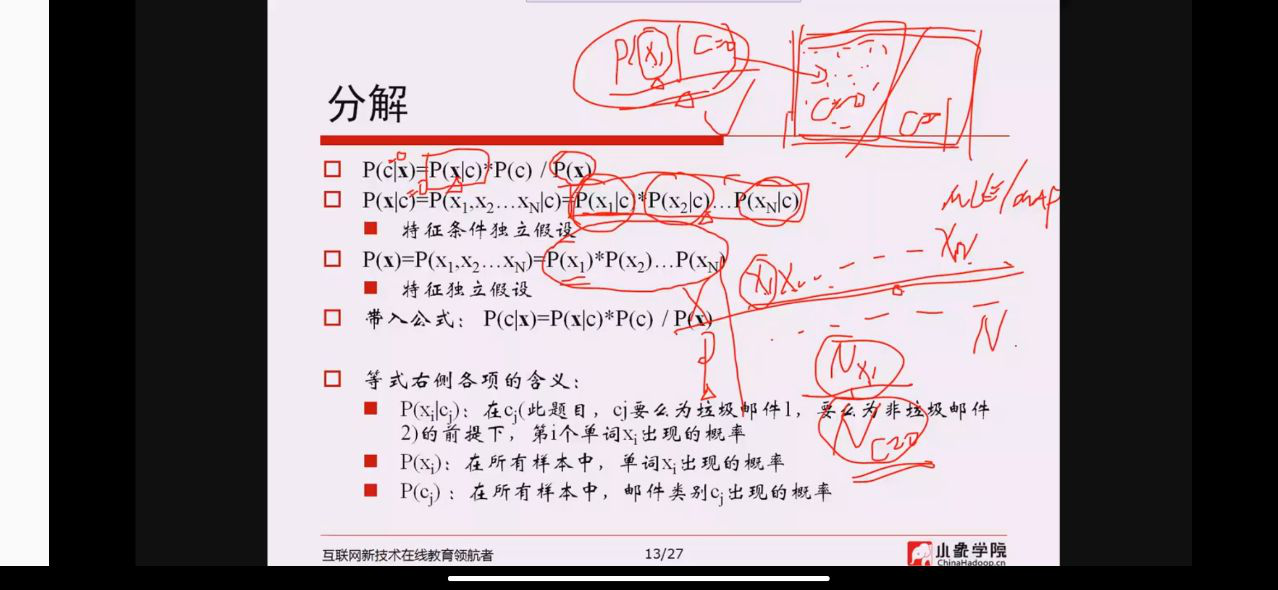 P(x₁|C=0
C=0
C=1
分解
P(c|x)=P(x|c)*P(c) / P(x)
P(x|c)=P(x₁,x₂…x_N|c)=P(x₁|c)*P(x₂|c)…P(x_N|c)
MLE/MAP
特征条件独立假设
P(x)=P(x₁,x₂…x_N)=P(x₁)*P(x₂)…P(x_N)
X₁ X₂ X_N
特征独立假设
带入公式： P(c|x)=P(x|c)*P(c) / P(x)
N
N_X₁
N_C=0
等式右侧各项的含义：
P(xᵢ|cⱼ)：在cⱼ(此题目，cj要么为垃圾邮件1，要么为非垃圾邮件
2)的前提下，第i个单词xᵢ出现的概率
P(xᵢ)：在所有样本中，单词xᵢ出现的概率
P(cⱼ)：在所有样本中，邮件类别cⱼ出现的概率
互联网新技术在线教育领航者
13/27
小象学院
ChinaHadoop.cn